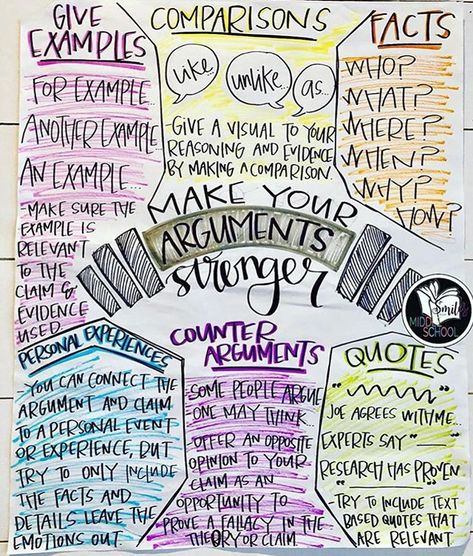 GIVE
EXAMPLES
FOR EXAMPLE...
ANOTHER EXAMPLE
AN EXAMPLE...
-MAKE SURE THE
EXAMPLE IS
RELEVANT
TO THE
CLAIM &
EVIDENCE
USED
COMPARISONS
like
unlike
as...
-GIVE A VISUAL TO YOUR
REASONING AND EVIDENCE
BY MAKING A COMPARISON.
FACTS
WHO?
WHAT?
WHERE?
WHEN?
WHY?
HOW?
MAKE YOUR
ARGUMENTS
stronger
Smiles
MIDDLE
SCHOOL
PERSONAL EXPERIENCES
-YOU CAN CONNECT THE
ARGUMENT AND CLAIM
TO A PERSONAL EVENT
OR EXPERIENCE, BUT
TRY TO ONLY INCLUDE
THE FACTS AND
DETAILS LEAVE THE
EMOTIONS OUT
COUNTER
ARGUMENTS
-SOME PEOPLE ARGUE
ONE MAY THINK...
-OFFER AN OPPOSITE
OPINION TO YOUR
CLAIM AS AN
OPPORTUNITY TO
PROVE A FALLACY IN THE
THEORY OR CLAIM.
QUOTES
" "
JOE AGREES WITH ME...
EXPERTS SAY " "
RESEARCH HAS PROVEN
-TRY TO INCLUDE TEXT
BASED QUOTES THAT
ARE RELEVANT